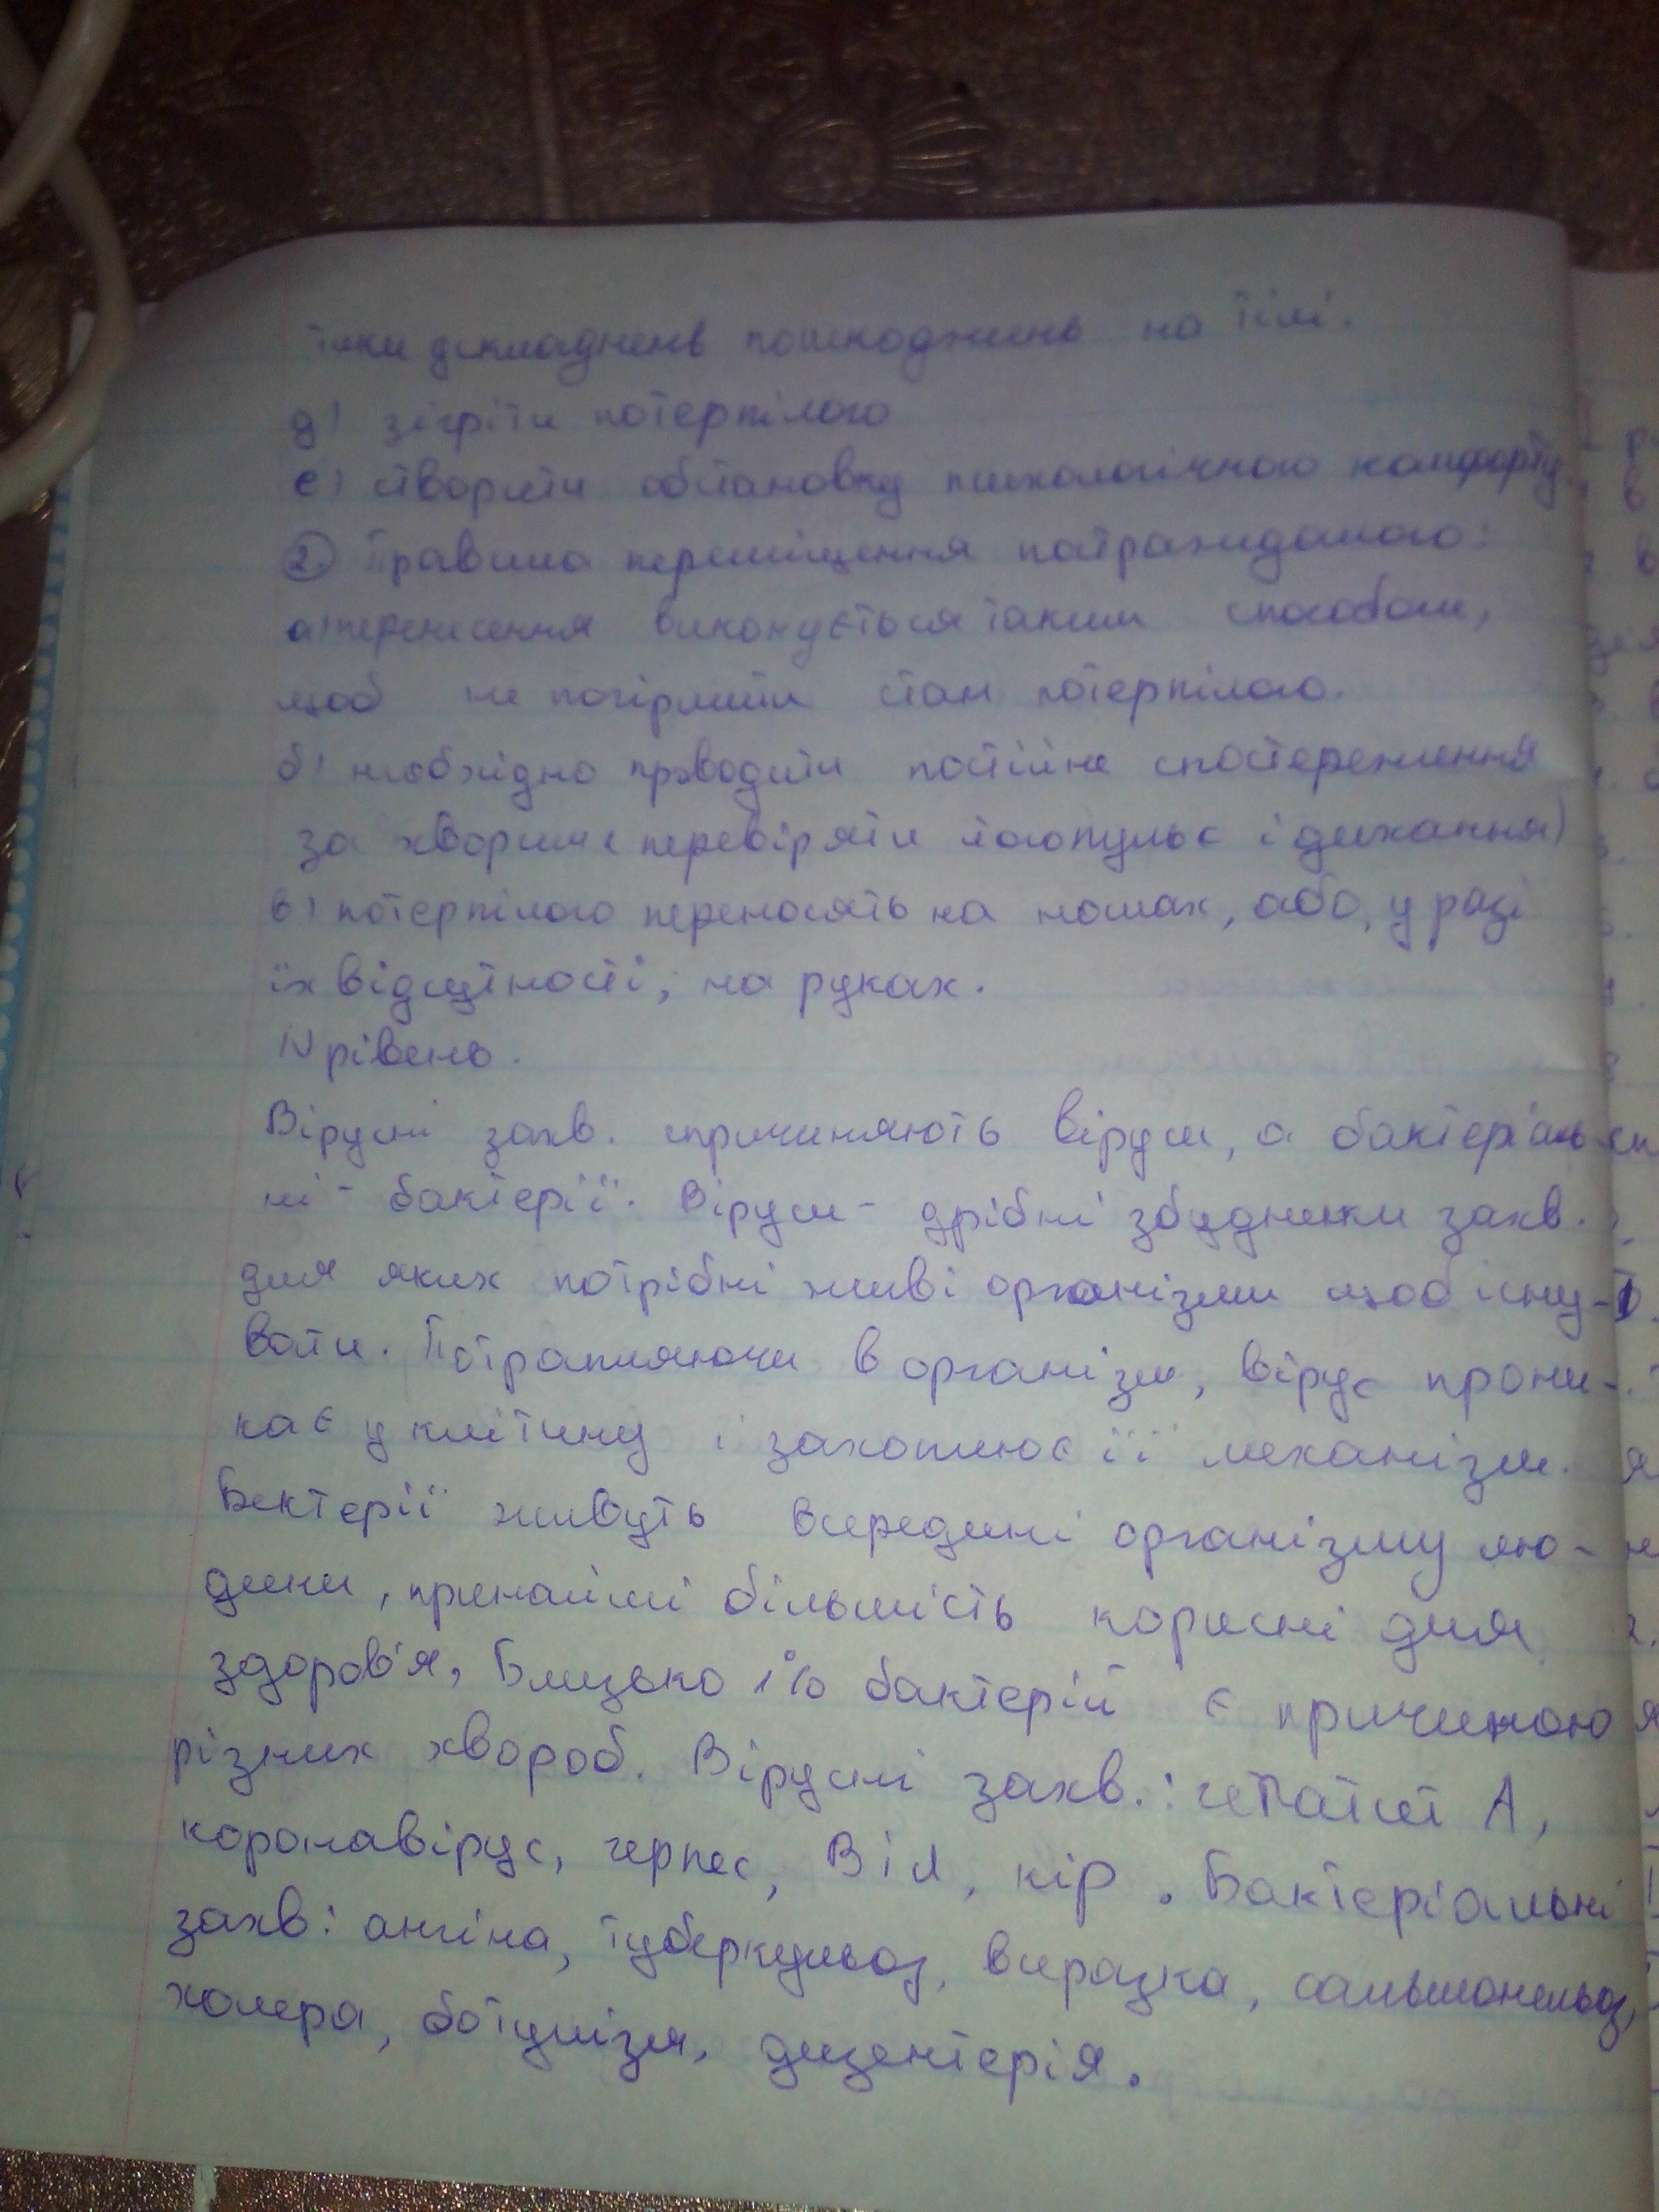 ускладнень пошкоджень на тілі.
д) зігріти потерпілого
е) створити обстановку психологічного комфорту.
2. Правила переміщення потраждалого:
а) перенесення виконується таким способом,
щоб не погіршити стан потерпілого.
б) необхідно проводити постійне спостереження
за хворим (перевіряти його пульс і дихання)
в) потерпілого переносять на ношах, або, у разі
їх відсутності, на руках.
IV рівень.
Вірусні захв. спричиняють віруси, а бактеріаль-
ні - бактерії. Віруси - дрібні збудники захв.
для яких потрібні живі організми щоб існу-
вати. Потрапляючи в організм, вірус прони-
кає у клітину і захоплює її механізм.
Бектерії живуть всередині організму лю-
дини, принаймні більшість корисні для
здоров'я, Близько 1% бактерій є причиною
різних хвороб. Вірусні захв.: гепатит А,
коронавірус, герпес, ВІЛ, кір. Бактеріальні
захв: ангіна, туберкульоз, виразка, сальмонельоз,
холера, ботулізм, дизентерія.